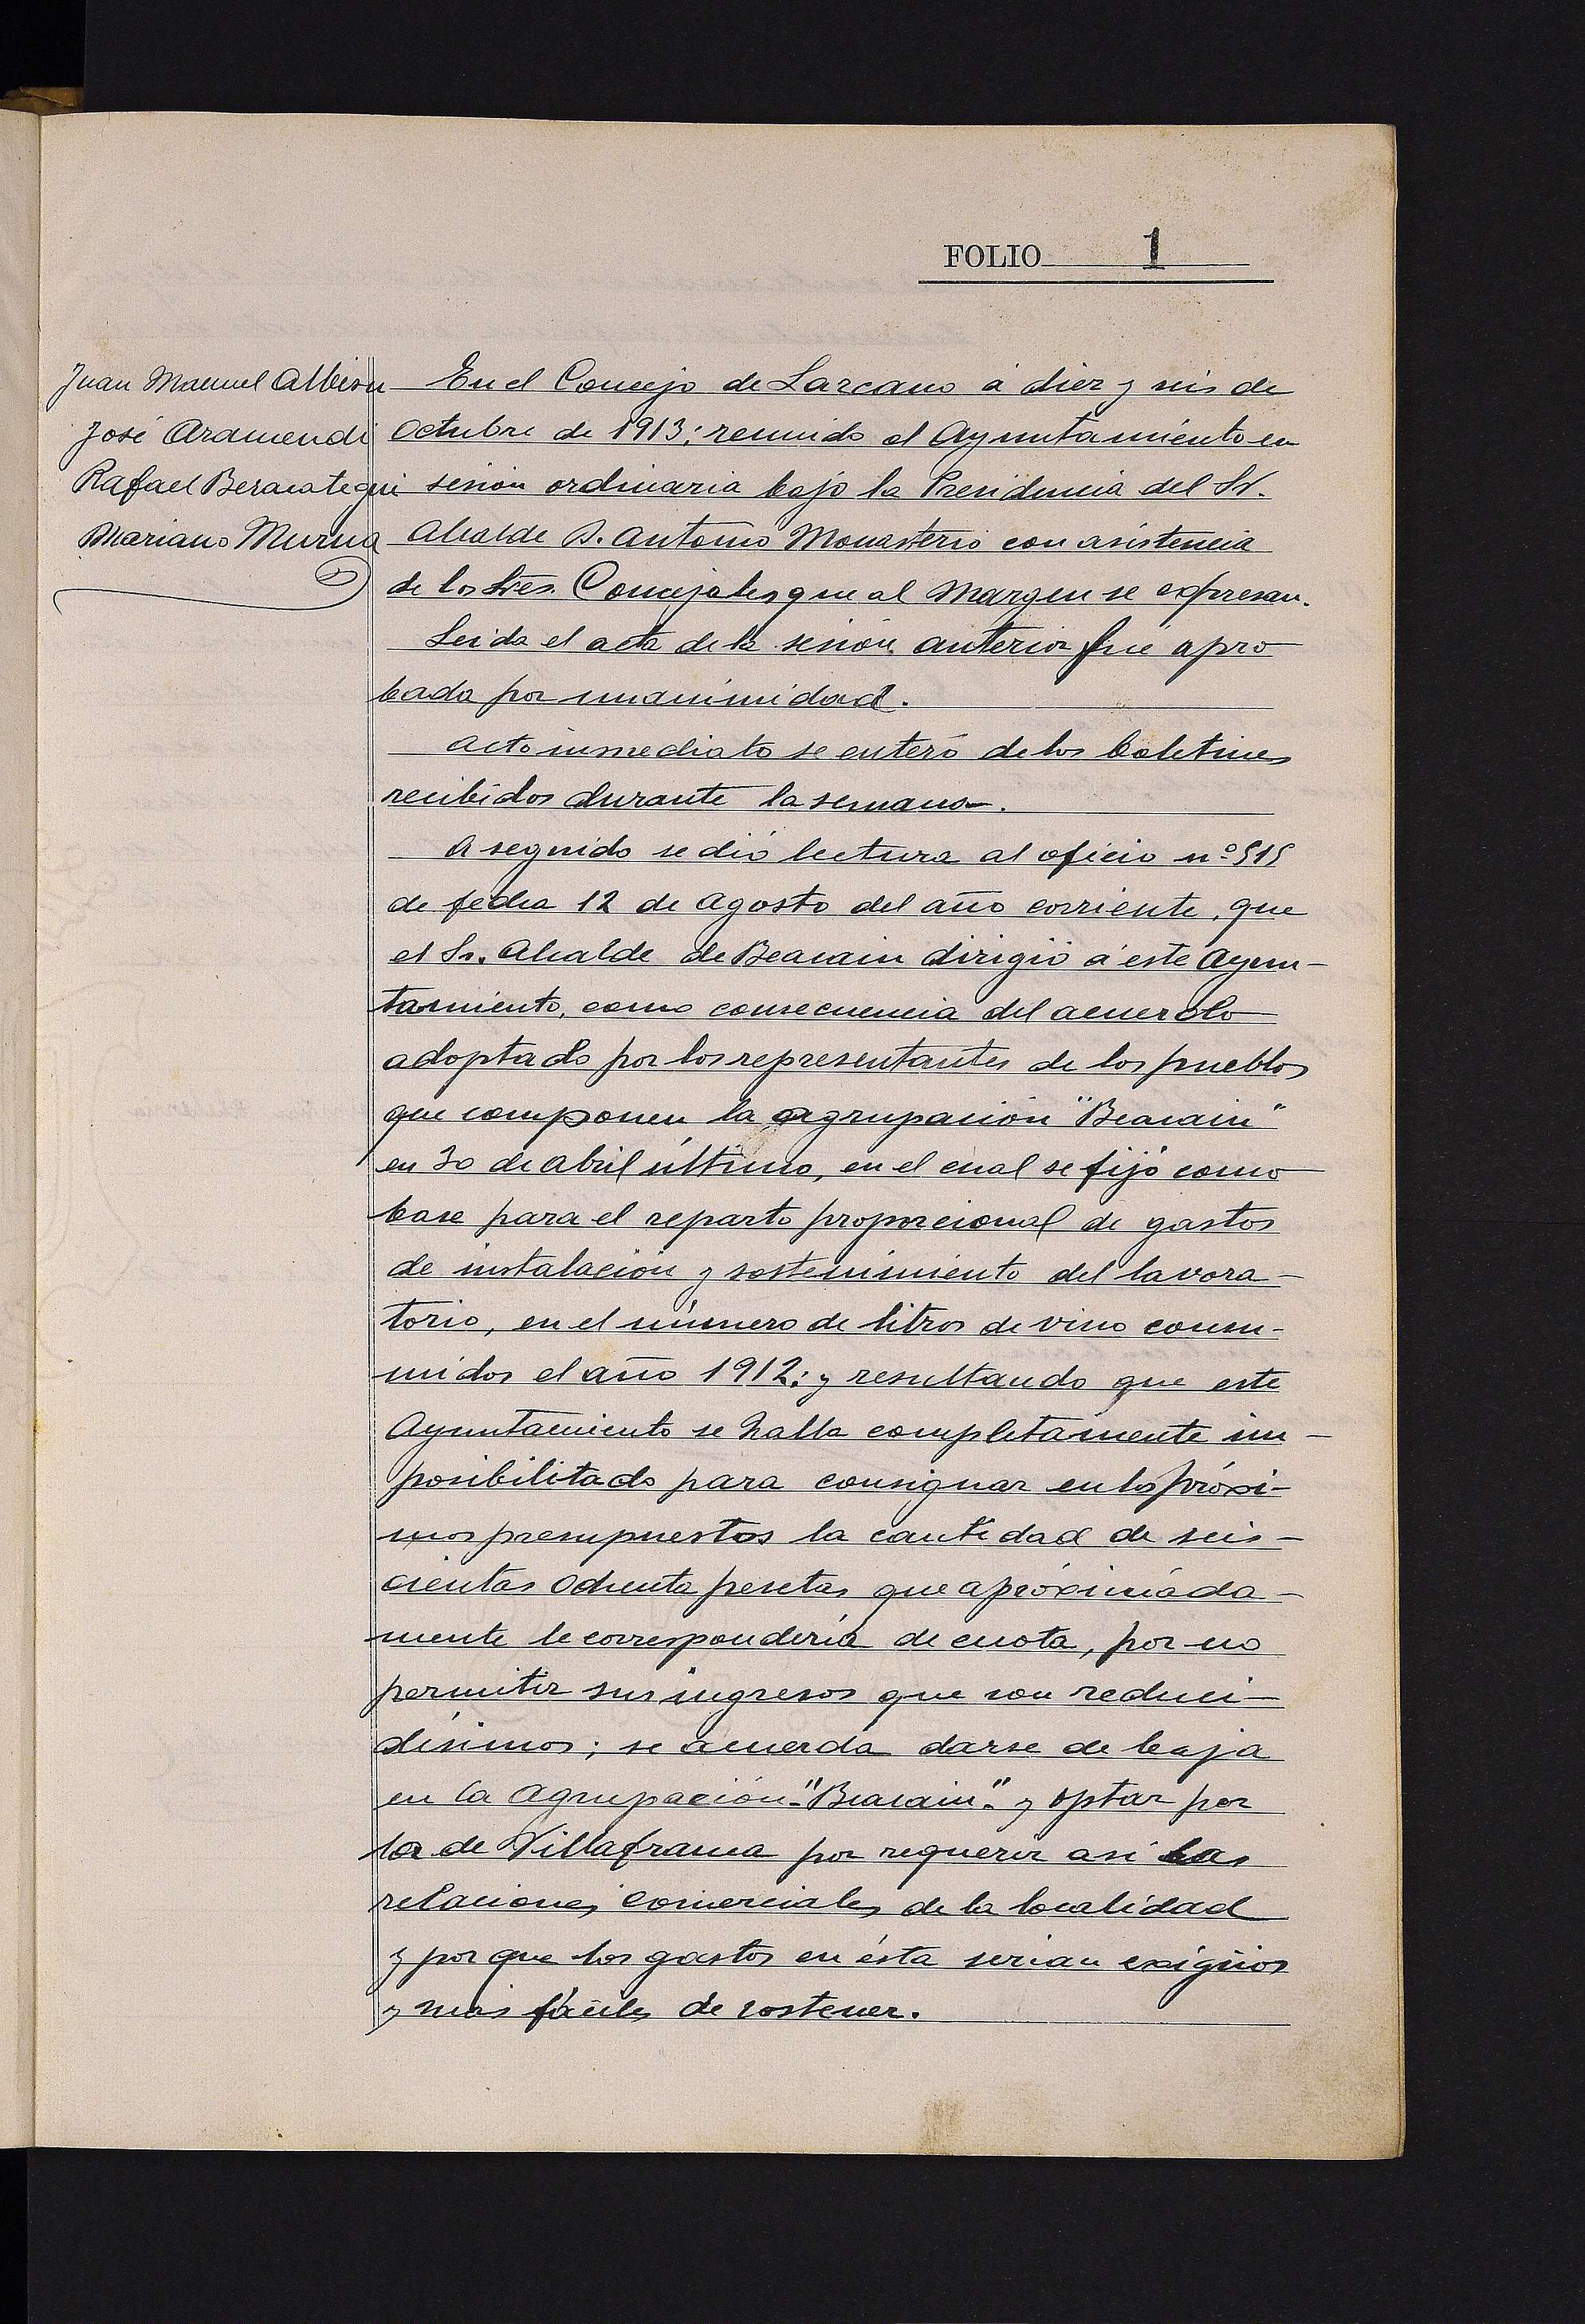 FOLIO 1
Juan Manuel Albisu
José Aramendi
Rafael Beracategui
Mariano Murua
En el Concejo de Lazcano á diez y seis de
Octubre de 1913; reunido el Ayuntamiento en
sesión ordinaria bajo la Presidencia del Sr.
Alcalde D. Antonio Monasterio con asistencia
de los Sres. Concejales que al margen se expresan.
Leida el acta de la sesión anterior fué apro
bada por unanimidad.
Acto inmediato se enteró de los boletines
recibidos durante la semana.
A seguido se dió lectura al oficio nº 515
de fecha 12 de Agosto del año corriente, que
el Sr. Alcalde de Beasain dirigió á este Ayun-
tamiento, como consecuencia del acuerdo
adoptado por los representantes de los pueblos
que componen la agrupación "Beasain"
en 30 de Abril último, en el cual se fijó como
base para el reparto proporcional de gastos
de instalación y sostenimiento del lavora-
torio, en el número de litros de vino consu-
midos el año 1912; y resultando que este
Ayuntamiento se halla completamente im-
posibilitado para consignar en los próxi-
mos presupuestos la cantidad de seis-
cientas ochenta pesetas que apróximada-
mente le correspondería de cuota, por no
permitir sus ingresos que son reduci-
dísimos; se acuerda darse de baja
en la Agrupación "Beasain" y optar por
la de Villafranca por requerir asi las
relaciones comerciales de la localidad
y por que los gastos en ésta serian exigüos
y mas fáciles de sostener.